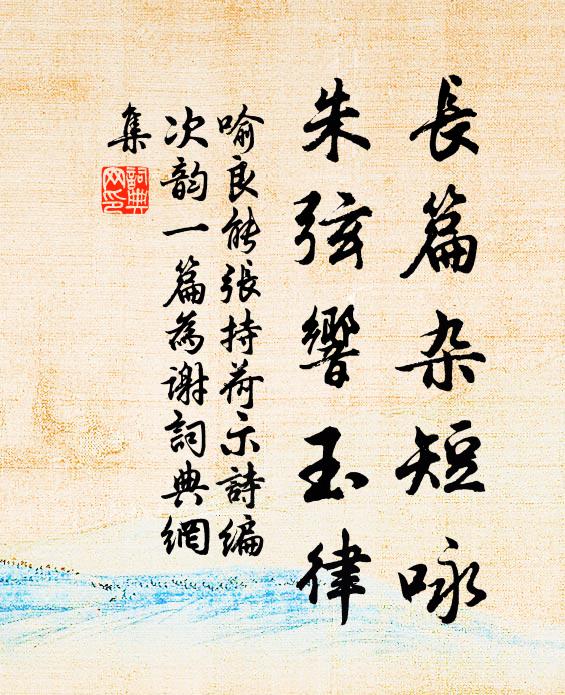 長篇杂短咏
朱弦響玉律
喻良能張持荷示詩编
次韵一篇為谢詞典網
集
詞典
网印